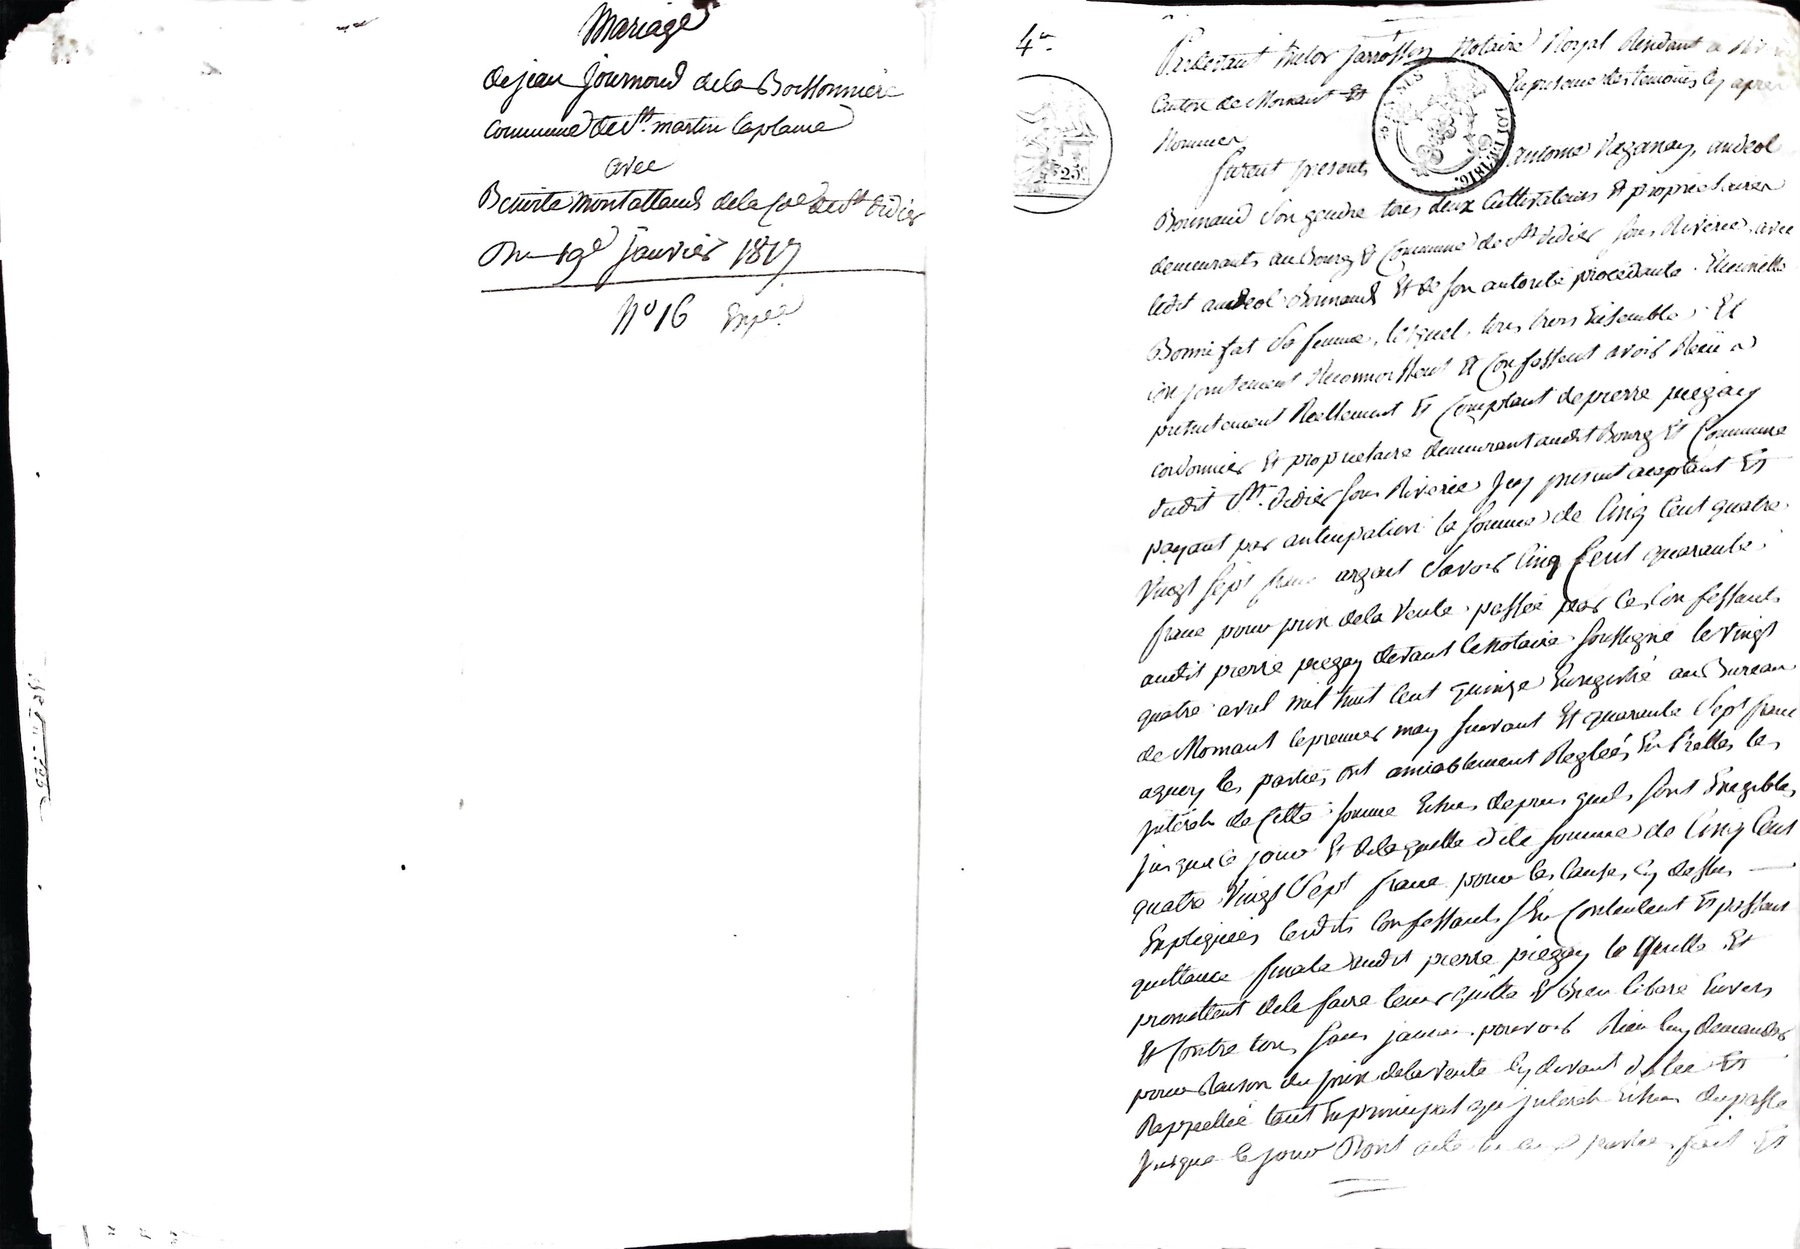 Mariage
de jean Journoud de la Boissonniere
commune de St. martin Laplaine
avec
Benoite montalland de la Coe de St didier
Du 19e Janvier 1817
No 16 Expée
4e
Pardevant Notaire Royal Résidant a
Canton de Mornant Et En présence des temoins Cy après
Nommés
furent présents antoine andéol
Bonnand Son gendre tous deux Cultivateurs Et propriétaires
demeurants au Bourg Et Commune de St didier Sous Riverie, avec
ledit andéol Bonnand Et de Son autorité procédante
Sa femme, lesquels tous trois Ensemble Et
Conjointement Reconnoissent Et Confessent avoir Reçu
présentement Réellement Et Comptant de pierre piegay
cordonnier Et propriétaire demeurant audit Bourg Et Commune
dudit St. didier Sous Riverie Icy présent acceptant Et
payant par anticipation la Somme de Cinq Cent quatre
Vingt Sept franc argent Savoir Cinq Cent quarante
franc pour prix de la Vente passée par les Confessants
audit pierre piegay devant le Notaire Soussigné le Vingt
quatre avril mil huit Cent quinze Enregistré au Bureau
de Mornant le premier may Suivant Et quarante Sept franc
aquoy les parties ont amiablement Reglées Entrelles les
Interets de Cette Somme Echus depuis quils Sont Exigibles
jusqua Ce jour Et de laquelle dite Somme de Cinq Cent
quatre Vingt Sept franc pour les Causes Cy dessus
Expliquées lesdits Confessants Sen Contentent Et passent
quittance finale audit pierre piegay la quelle Et
promettent de le faire tenir quitte Et Bien libéré Envers
Et Contre tous Sans jamais pouvoir Rien luy demander
pour Raison du prix de la Vente Cy devant datée Et
Rappellée tant En principal que Interets Echus du passé
Jusqua Ce jour Dont acte fait Et
25c
LOI DE 1816.